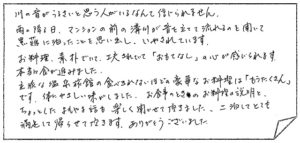 川の音がうるさいと思う人がいるなんて信じられません。
雨の降る日、マンションの前の溝川が音を立て流れるのを聞いて
黒薙に泊ったことを思い出し、いやされています。
お料理、素朴でいて、工夫されていて「おもてなし」の心が感じられます
本当に食が進みました。
立派な温泉旅館の食べきれないほどの豪華なお料理は「もうたくさん」
です。体にやさしい味がしました。お食事のときのお料理の説明と、
ちょっとしたよもやま話も楽しく聞かせて頂きました。二泊してとても
満足して帰らせて頂きます。ありがとうございました